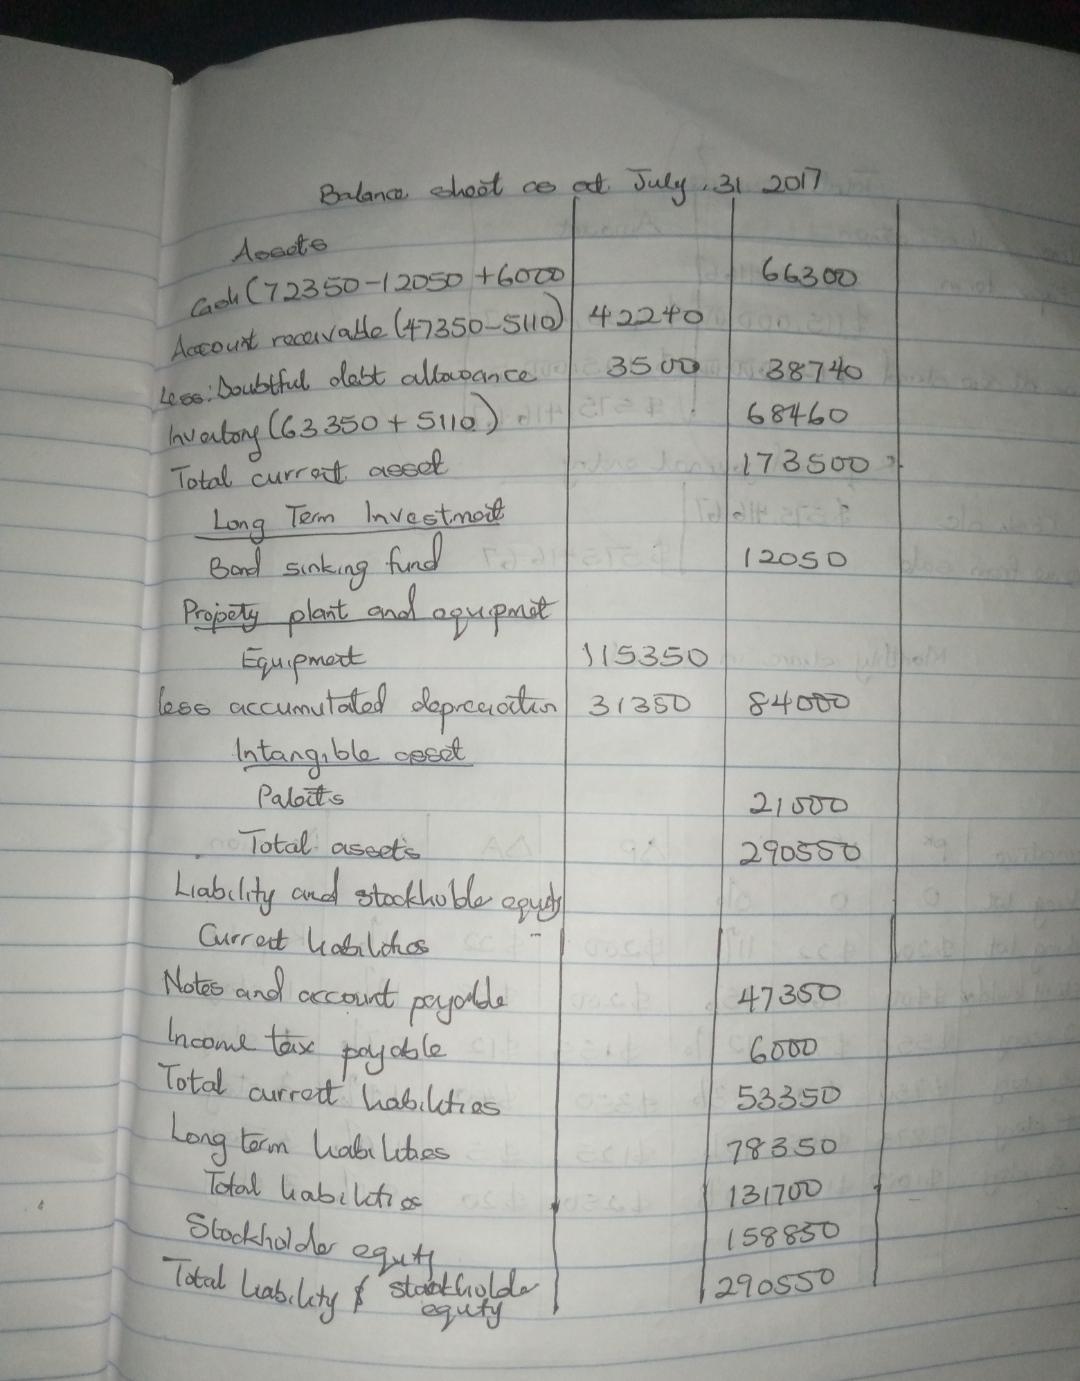 Balance sheet as at July, 31 2017
Assets
Cash (72350-12050 +6000 66300
Account receivable (47350-5110) 42240
Less: Doubtful debt allowance 3500 38740
Inventory (63350 + 5110) 68460
Total current asset 173500
Long Term Investment
Bond sinking fund 12050
Propety plant and equipmet
Equipment 115350
less accumutated depreciation 31350 84000
Intangible asset
Patents 21000
Total assets 290550
Liability and stockholde equity
Current liabilities
Notes and account payable 47350
Income tax payable 6000
Total current liabilities 53350
Long term liabilities 78350
Total liabilities 131700
Stockholder equity 158850
Total liability & stockholde 290550
equity